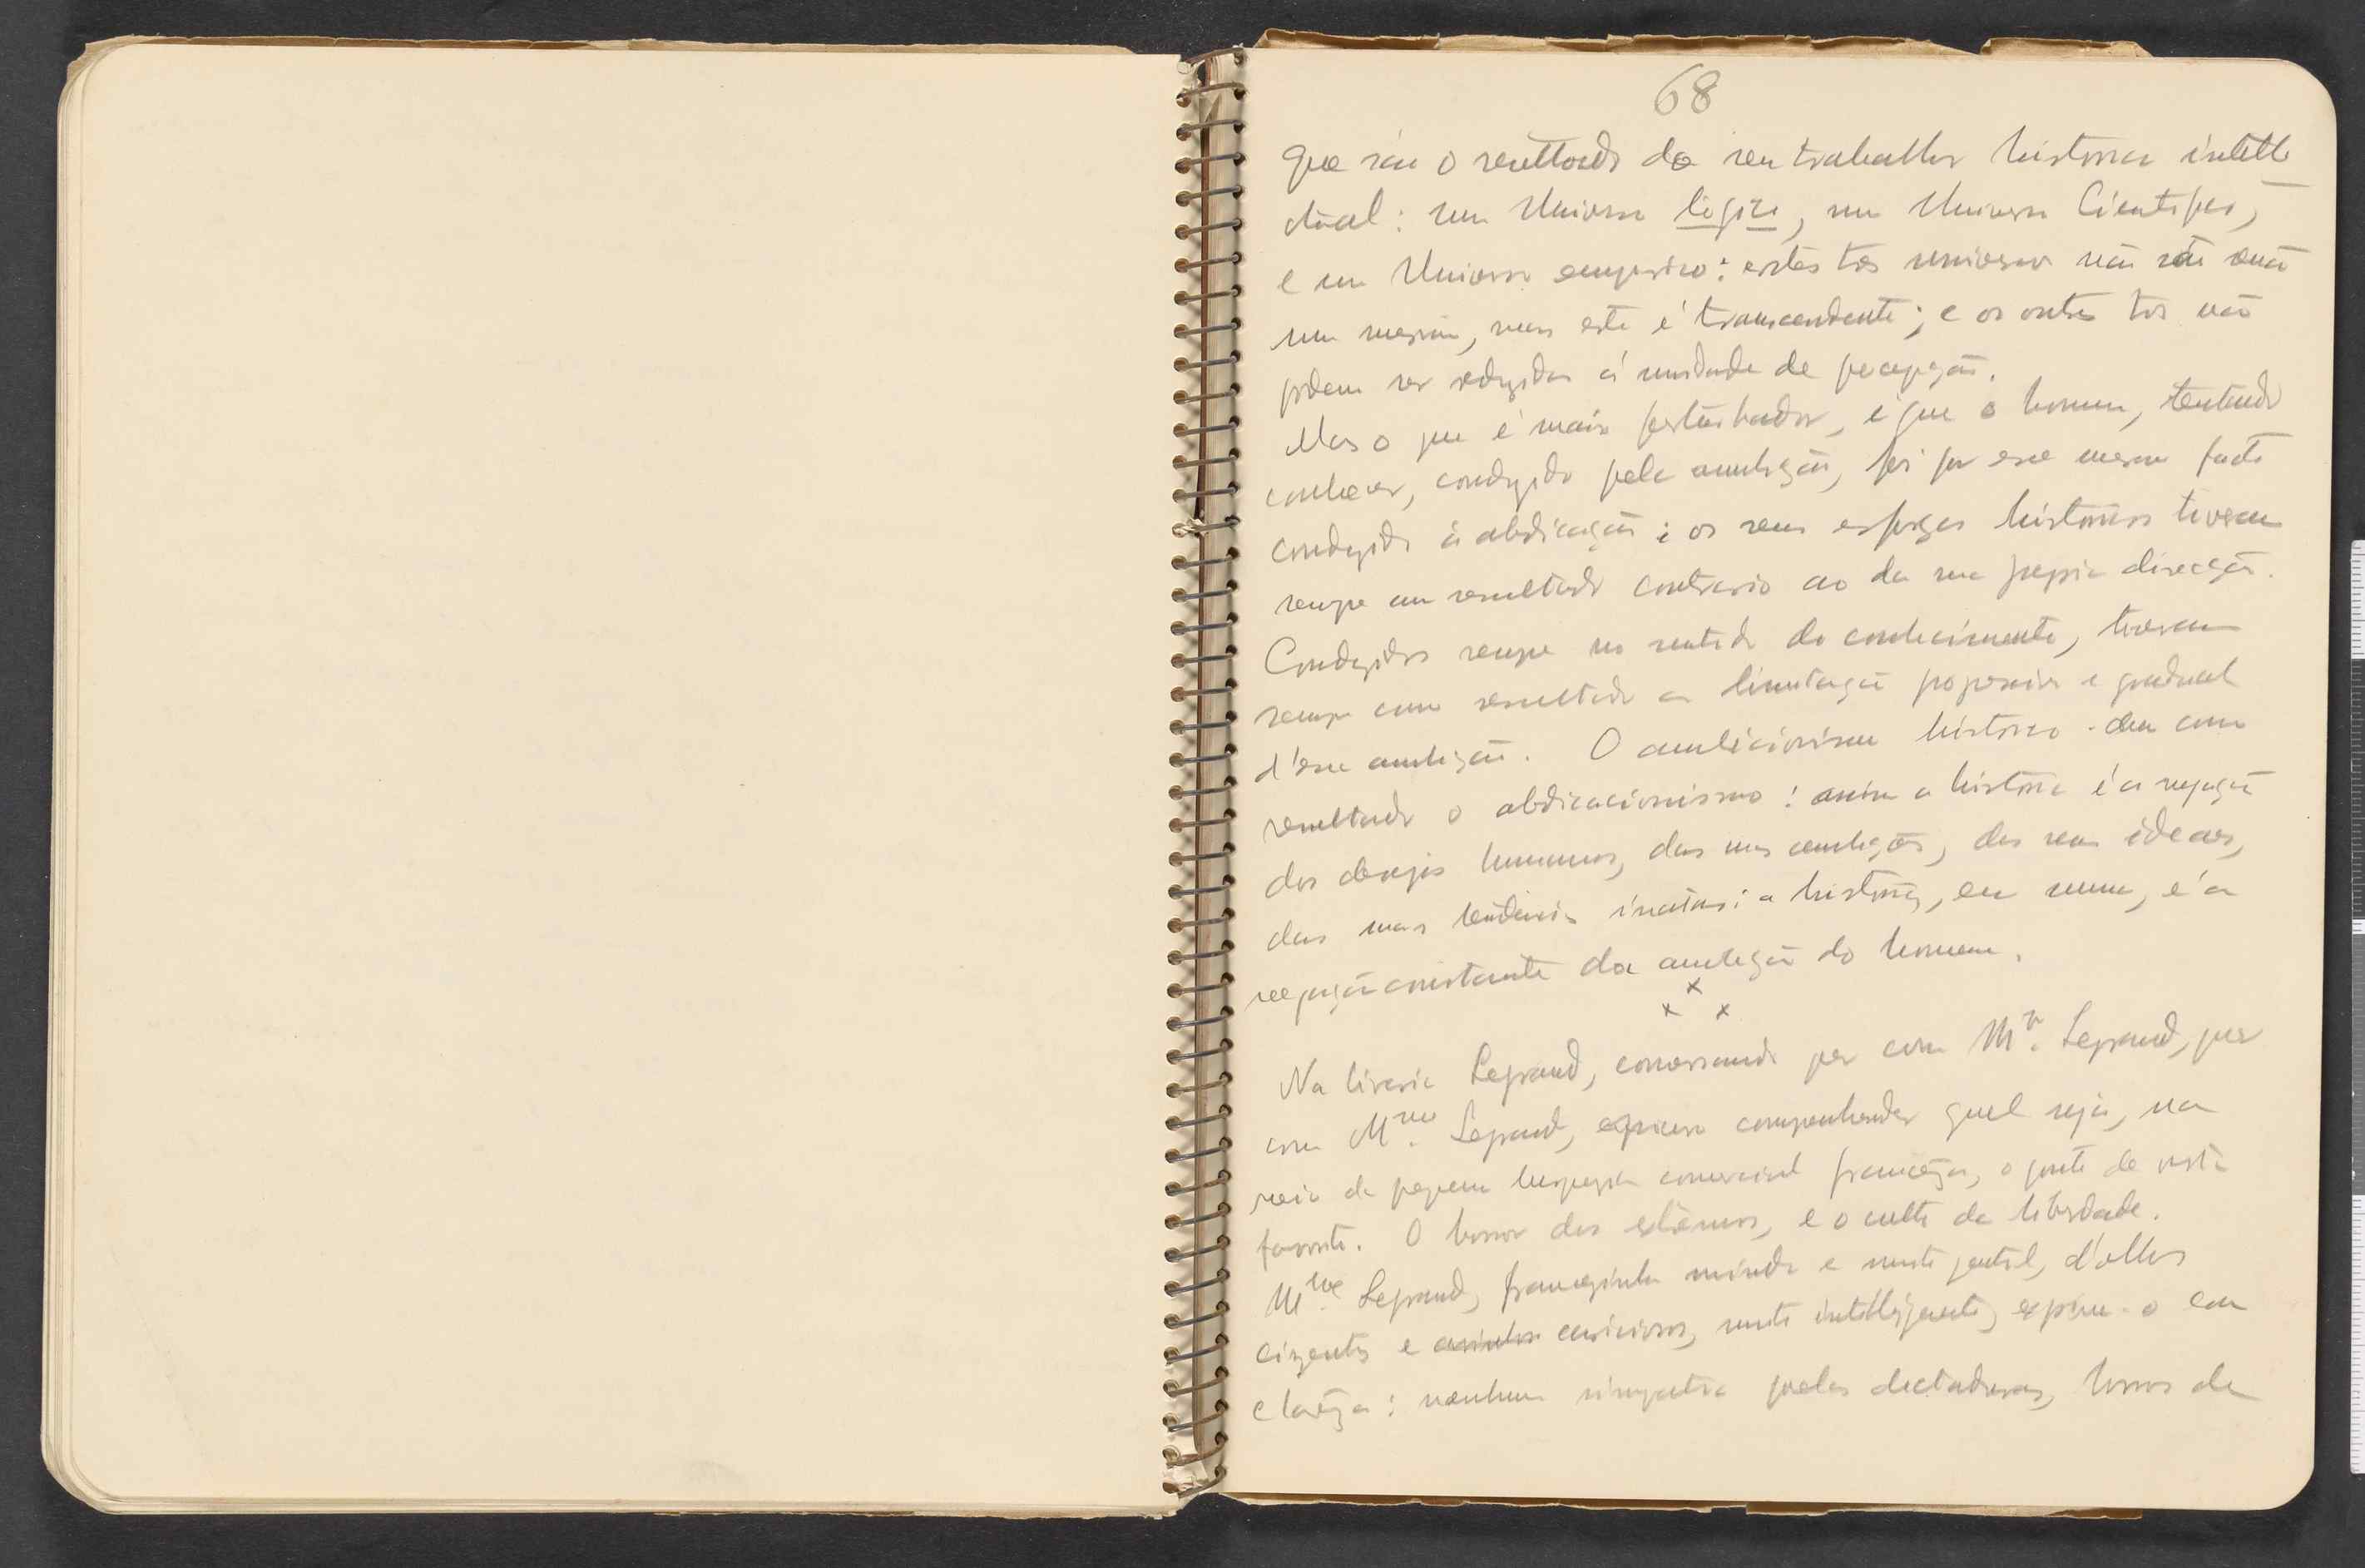 68
que são o resultado do seu trabalho historico intelle
ctual: um Universo logico, um Universo Cientifico,
e um Universo empirico: estes tres universos não são senão
um mesmo, mas este é transcendente; e os outros tres não
podem ser reduzidos á unidade de percepção.
Mas o que é mais perturbador, é que o homem, tentando
conhecer, conduzido pela ambição, foi por esse mesmo facto
conduzido á abdicação; os seus esforços historicos tiveram
sempre um resultado contrario ao da sua propria direcção.
Conduzidos sempre no sentido do conhecimento, tiveram
sempre como resultado a limitação progressiva e gradual
d'essa ambição. O ambicionismo historico deu como
resultado o abdicacionismo: assim a historia é a negação
dos desejos humanos, das suas ambições, dos seus ideaes,
das suas tendencias inatas: a historia, em suma, é a
negação constante da ambição do homem.
x x x
Na livraria Legrand, conversando quer com Mr. Legrand, quer
com Mme. Legrand, comprehender qual seja, na
meia da pequena burguezia comercial franceza, o ponto de vista
favorito. O horror dos extremos, e o culto da liberdade.
Mme. Legrand, francezinha miuda e muito gentil, d'olhos
cinzentos e cariciosos, muito intelligente, exprime-o com
clareza: nenhuma simpatia pelas dictaduras, horror da